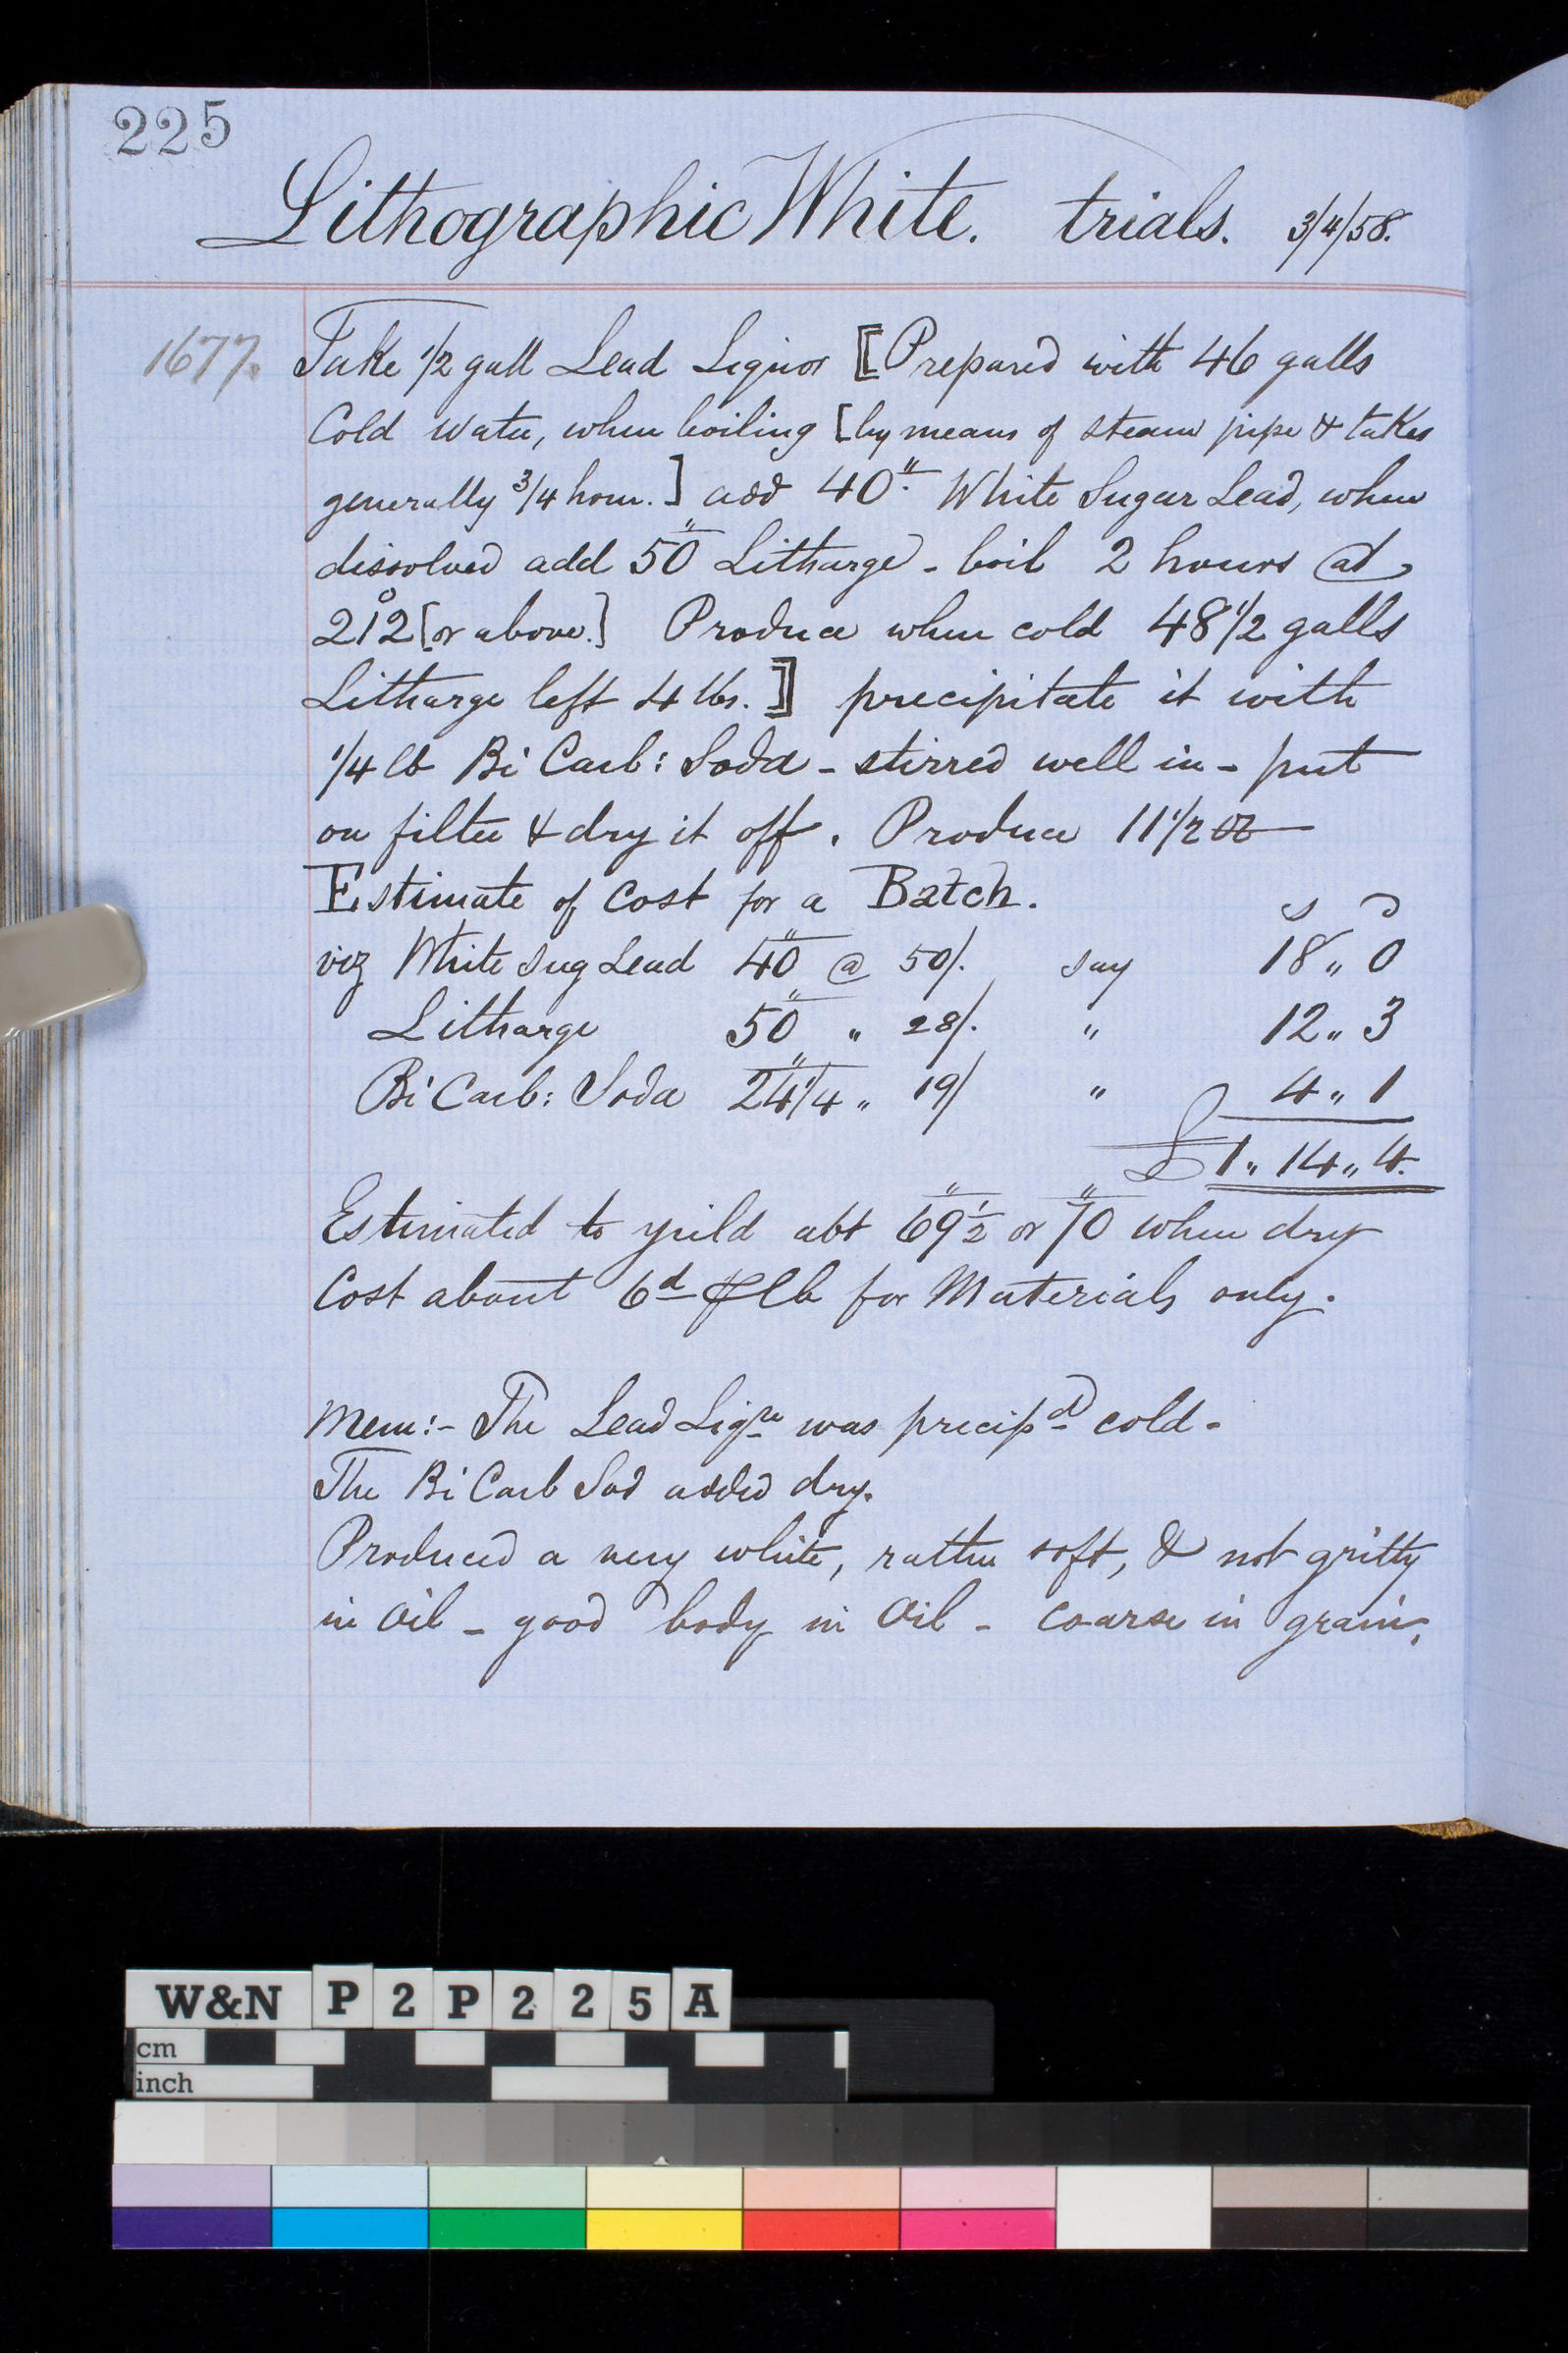 225
Lithographic White. trials. 3/4/58.
1677. Take 1/2 gall Lead Liquor [Prepared with 46 galls
Cold Water, when boiling [by means of steam pipe & takes
generally 3/4 hour.] add 40" White Sugar Lead, when
dissolved add 50" Litharge - boil 2 hours at
212° [or above.] Produce when cold 48 1/2 galls
Litharge left 4 lbs.] precipitate it with
1/4 lb Bi Carb: Soda - stirred well in - put
on filter & dry it off. Produce 11 1/2 oz
Estimate of Cost for a Batch. s d
viz White Sug Lead 40" @ 50/. say 18 " 0
Litharge 50" " 28/. " 12 " 3
Bi Carb: Soda 24 1/4" " 19/ " 4 " 1
£1 " 14 " 4.
Estimated to yield abt 69 1/2" or 70" when dry
Cost about 6d ⅌ lb for Materials only.
Mem:- The Lead Liqr was precipd cold -
The Bi Carb Sod added dry.
Produced a very white, rather soft, & not gritty
in Oil - good body in Oil - coarse in grain.
W&N P2P225A
cm
inch